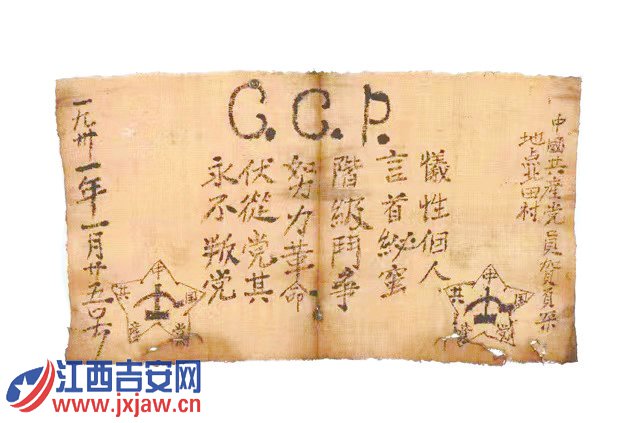 C.C.P.
中國共產党員賀頁朶
地点北田村
犠性個人
言首秘蜜
階級鬥争
努力革命
伏從党其
永不叛党
一九卅一年一月廿五号
中国共產党
中国共產党
江西吉安网
www.jxjaw.cn